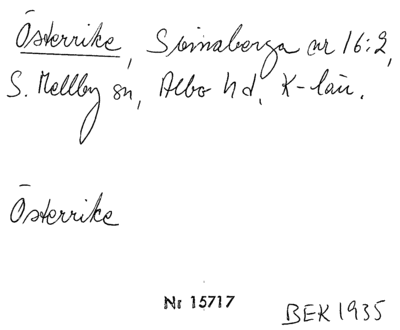 Österrike, Svinaberga nr 16:2,
S. Mellby sn, Albo hd, K-län.
Österrike
Nr 15717
BEK 1935